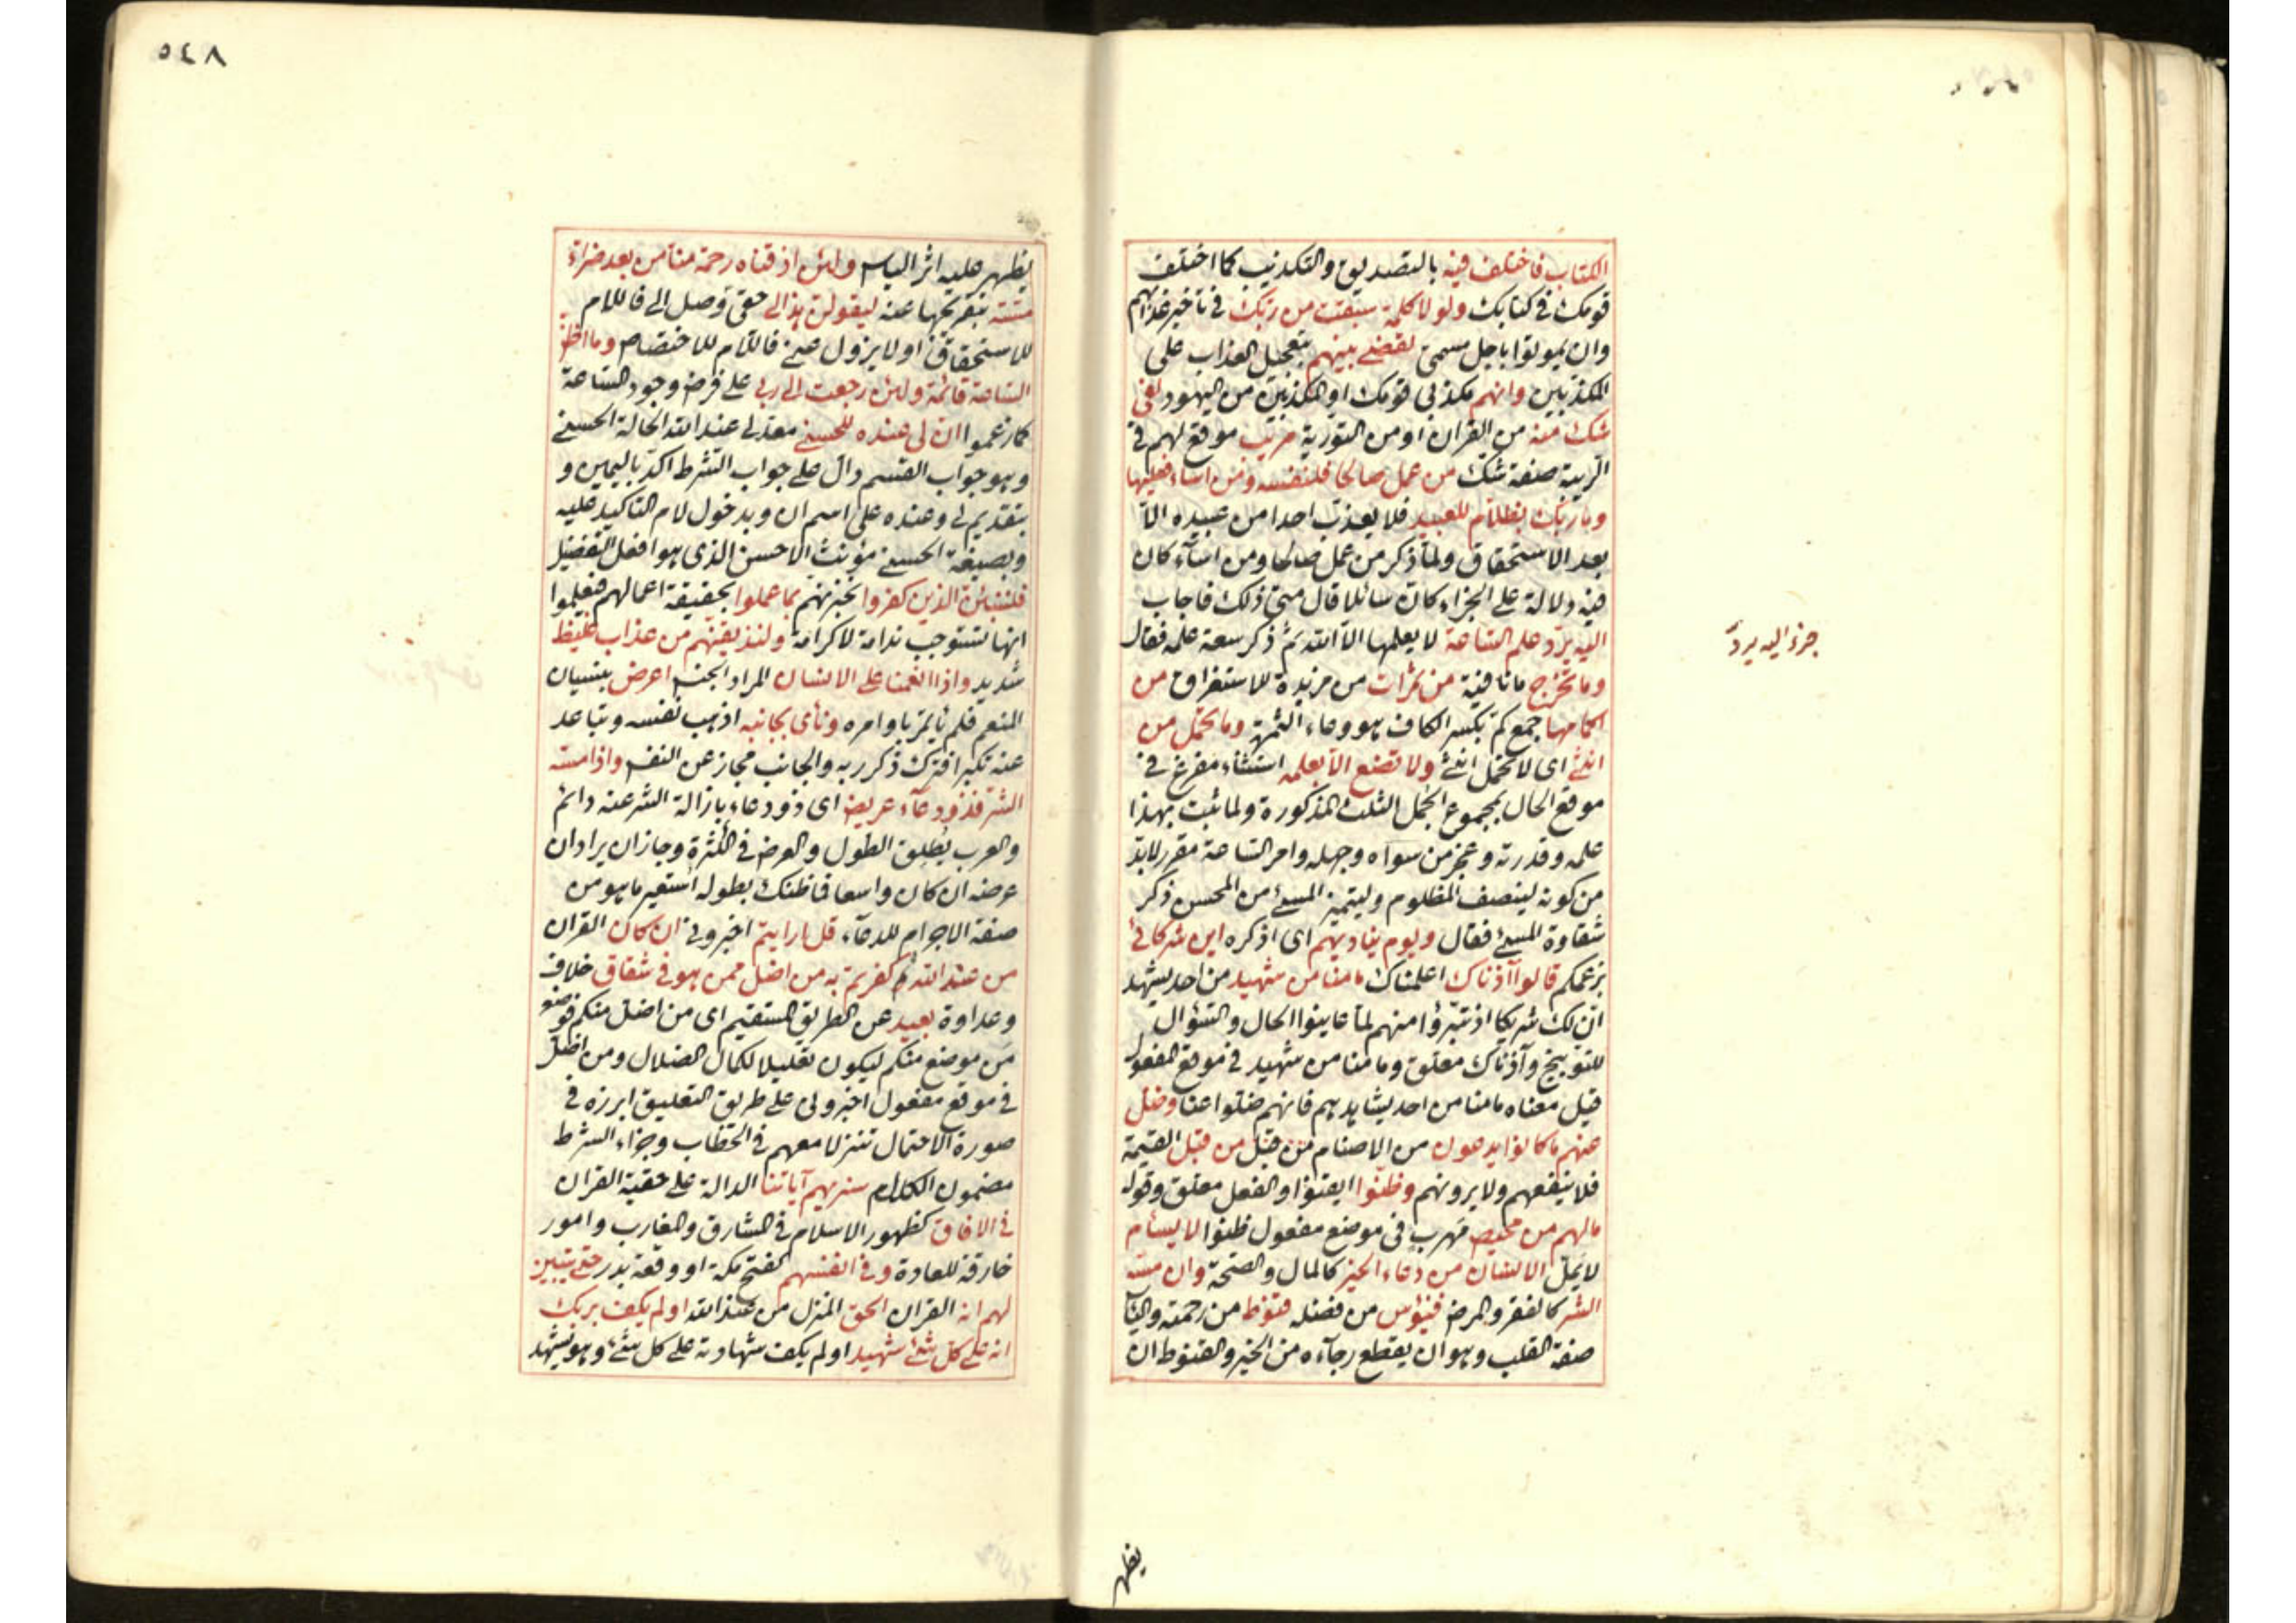 الكتاب فاختلف فيه بالتصديق والتكذيب كما اختلف
قومك في كتابك ولولا كلمة سبقت من ربك في تأخير عذابهم
وان يموتوا باجل مسمى لقضى بينهم بتعجيل العذاب على
المكذبين وانهم مكذبي قومك او المكذبين من اليهود لفى
شك منه من القران او من التورية مريب موقع لهم في
الريبة صفة شك من عمل صالحا فلنفسه ومن اساء فعليها
وما ربك بظلام للعبيد فلا يعذب احدا من عبيده الا
بعد الاستحقاق ولما ذكر من عمل صالحا ومن اساء كان
فيه دلالة على الجزاء كان سائلا قال متى ذلك فاجاب
اليه يرد علم الساعة لا يعلمها الا الله ثم ذكر سعة علمه فقال
وما تخرج ما نافية من ثمرات من مزيدة للاستغراق من
اكمامها جمع كم بكسر الكاف هو وعاء الثمرة وما تحمل من
انثى اى لا تحمل انثى ولا تضع الا بعلمه استثناء مفرغ في
موقع الحال بمجموع الجمل الثلث المذكورة ولما ثبت بهذا
علمه وقدرته وعجز من سواه وجهله وامر الساعة مقرر لابد
من كونه لينصف المظلوم وليتميز المسئ من المحسن ذكر
شقاوة المسئ فقال ويوم يناديهم اى اذكره اين شركائى
بزعمكم قالوا آذناك اعلمناك ما منا من شهيد من احد يشهد
ان لك شريكا اذ تبرؤا منهم لما عاينوا الحال والسؤال
للتوبيخ وآذناك معلق وما منا من شهيد في موقع المفعول
قيل معناه ما منا من احد يشاهدهم فانهم ضلوا عنا وضل
عنهم ما كانوا يدعون من الاصنام من قبل من قبل القيمة
فلا ينفعهم ولا يرونهم وظنوا ايقنوا والفعل معلق وقوله
مالهم من محيص مهرب في موضع مفعول ظنوا لا يسأم
لا يمل الانسان من دعاء الخير كالمال والصحة وان مسه
الشر كالفقر والمرض فيؤس من فضله قنوط من رحمته واليأس
صفة القلب وهو ان يقطع رجآءه من الخير والقنوط ان
يظهر
جزء اليه يرد
٥٤٨
يظهر عليه اثر الياس ولئن اذقناه رحمة منا من بعد ضراء
مسته بتفريجها عنه ليقولن هذا لى حقى وصل الى فاللام
للاستحقاق او لا يزول عنى فاللام للاختصاص وما اظن
الساعة قائمة ولئن رجعت الى ربى على فرض وجود الساعة
كما زعموا ان لى عنده للحسنى معد لى عند الله الحالة الحسنى
وهو جواب القسم دال على جواب الشرط اكد باليمين و
بتقديم لى وعنده على اسم ان وبدخول لام التاكيد عليه
وبصيغة الحسنى مؤنث الاحسن الذى هو افعل التفضيل
فلننبئن الذين كفروا لنخبرنهم بما عملوا بحقيقة اعمالهم فيعلموا
انها تستوجب ندامة لا كرامة ولنذيقنهم من عذاب غليظ
شديد واذا انعمنا على الانسان المراد الجنس اعرض بنسيان
المنعم فلم ياتمر باوامره ونأى بجانبه اذهب نفسه وتباعد
عنه تكبرا فترك ذكر ربه والجانب مجاز عن النفس واذا مسه
الشر فذو دعاء عريض اى ذو دعاء بازالة الشر عنه دائم
والعرب يطلق الطول والعرض في الكثرة وجاز ان يراد ان
عرضه ان كان واسعا فما ظنك بطوله استعير ما هو من
صفة الاجرام للدعاء قل ارايتم اخبرونى ان كان القران
من عند الله ثم كفرتم به من اضل ممن هو في شقاق خلاف
وعداوة بعيد عن الطريق المستقيم اى من اضل منكم فوضع
من موضع منكم ليكون تعليلا لكمال الضلال ومن اضل
في موقع مفعول اخبرونى على طريق التعليق ابرزه في
صورة الاحتمال تنزلا معهم في الخطاب وجزاء الشرط
مضمون الكلام سنريهم آياتنا الدالة على حقية القران
في الافاق كظهور الاسلام في المشارق والمغارب وامور
خارقة للعادة وفي انفسهم كفتح مكة او وقعة بدر حتى يتبين
لهم انه القران الحق المنزل من عند الله اولم يكف بربك
انه على كل شئ شهيد اولم يكف شهادته على كل شئ وهو يشهد